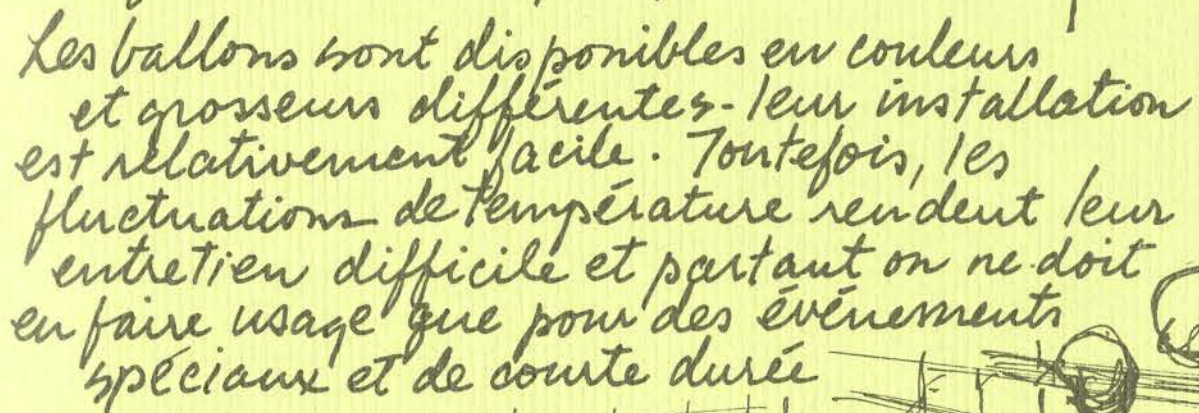 Les ballons sont disponibles en couleurs
et grosseurs différentes - leur installation
est relativement facile. Toutefois, les
fluctuations de température rendent leur
entretien difficile et partant on ne doit
en faire usage que pour des événements
spéciaux et de courte durée